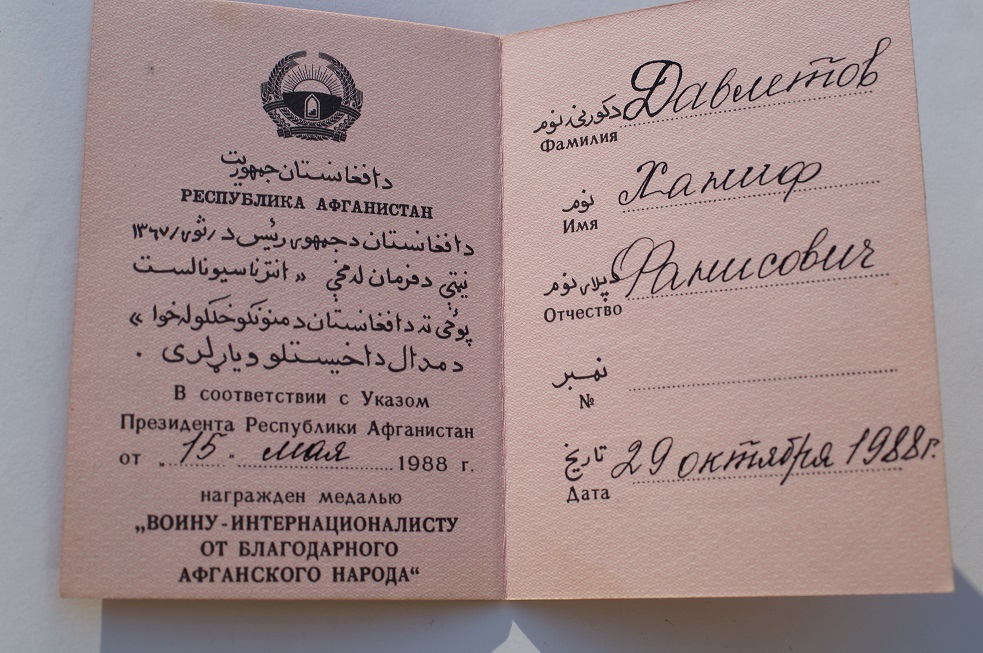 دافغانستان جمهوریت
РЕСПУБЛИКА АФГАНИСТАН
دافغانستان دجمهوری رئیس د /ثور/ ۱۳٦٧
نیټې دفرمان له مخې « انترناسیونالست
پوځي ته دافغانستان د منونکو خلکو له خوا »
د مدال داخیستلو ویاړ لری .
В соответствии с Указом
Президента Республики Афганистан
от „15“ мая 1988 г.
награжден медалью
„ВОИНУ-ИНТЕРНАЦИОНАЛИСТУ
ОТ БЛАГОДАРНОГО
АФГАНСКОГО НАРОДА“
دکورنۍ نوم Давлетов
Фамилия
نوم Ханиф
Имя
دپلار نوم Фанисович
Отчество
نمبر
№
تاریخ 29 октября 1988г.
Дата